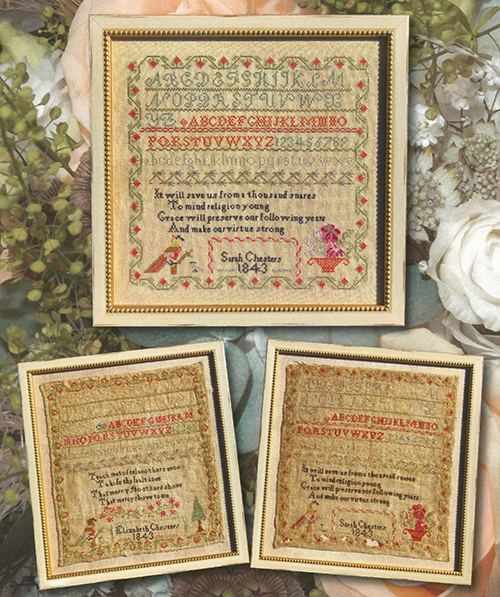 ABCDEFGHIJKLM
NOPQRSTUVWX
YZ ABCDEFGHIJKLMNO
PQRSTUVWXYZ 123456789
abcdefghijklmnopqrstuvwxyz
It will save us from a thousand snares
To mind religion young
Grace will preserve our following years
And make our virtue strong
Sarah Chesters
1843
ABCDEFGHIJKLM
NOPQRSTUVWXYZ
Teach me to feel anothers woe
To hide the fault I see
That mercy I to others show
That mercy show to me
Elizabeth Chesters
1843
ABCDEFGHIJKLMNO
PQRSTUVWXYZ
It will save us from a thousand snares
To mind religion young
Grace will preserve our following years
And make our virtue strong
Sarah Chesters
1843